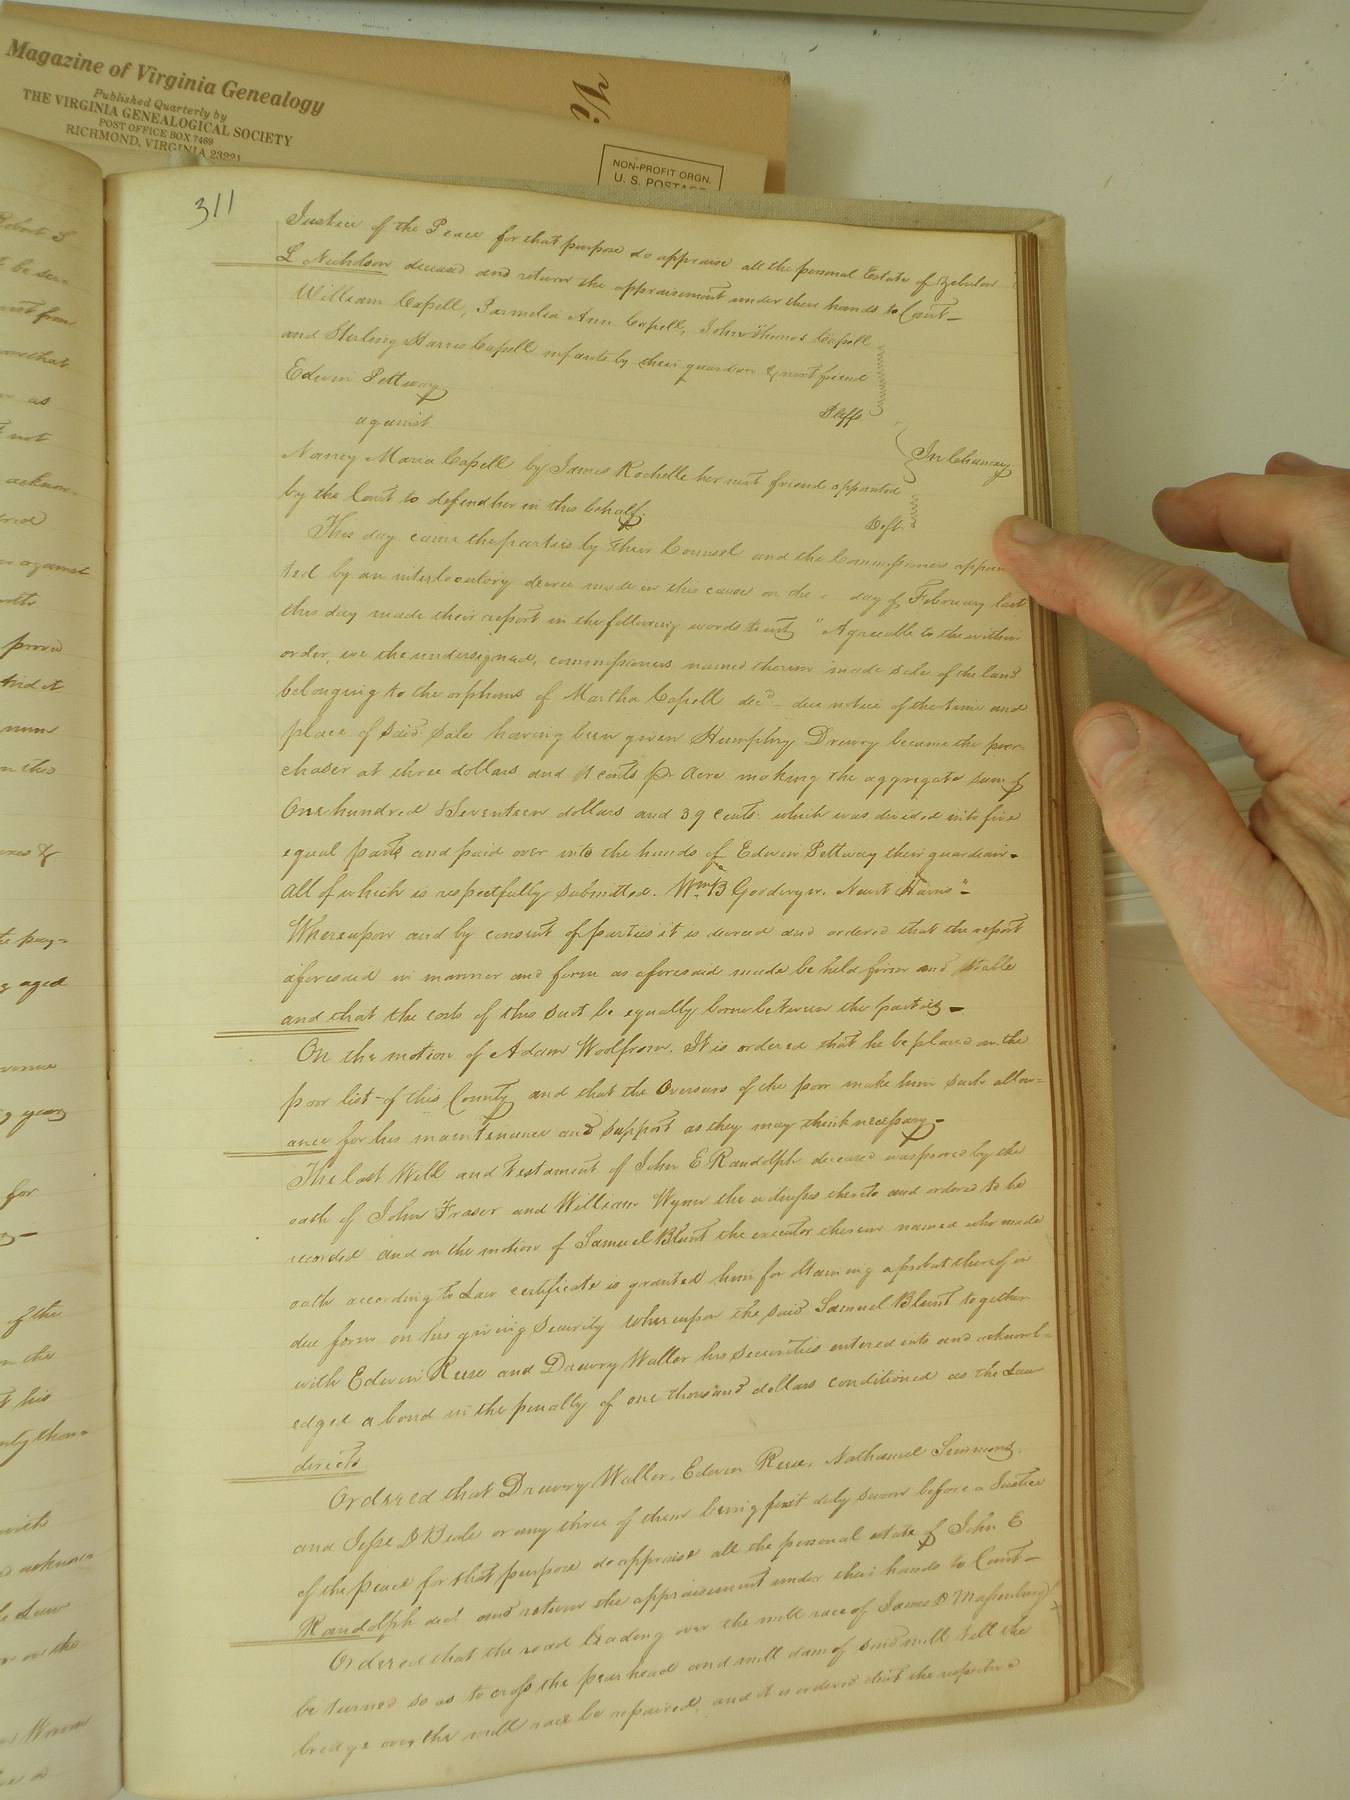 Magazine of Virginia Genealogy
Published Quarterly by
THE VIRGINIA GENEALOGICAL SOCIETY
POST OFFICE BOX 7469
RICHMOND, VIRGINIA 23221
Vi
NON-PROFIT ORGN.
U. S. POSTAGE
311
Justice of the Peace for that purpose do appraise all the personal Estate of Zebulon
L Nicholson deceased and return the appraisement under their hands to Court
William Capell, Permelia Ann Capell, John Thomas Capell
and Sterling Harris Capell infants by their guardian & next friend
Edwin Pettway
Plffs
against
In Chancery
Nancy Maria Capell by James Rochelle her next friend appointed
by the Court to defend her in this behalf.
Deft
This day came the parties by their Counsel and the Commissioners appoin
ted by an interlocutory decree made in this cause on the day of February last
this day made their report in the following words to wit "Agreeable to the within
order, we the undersigned, commissioners named therein made sale of the land
belonging to the orphans of Martha Capell decd. due notice of the time and
place of said sale having been given Humphry Drewry became the pur
chaser at three dollars and 11 cents pr Acre making the aggregate sum of
One hundred & Seventeen dollars and 39 Cents which was devided into five
equal parts and paid over into the hands of Edwin Pettway their guardian.
All of which is respectfully submitted. Wm. B Goodwyn. Newit Harris"
Whereupon and by consent of parties it is decreed and ordered that the report
aforesaid in manner and form as aforesaid made be held firm and stable
and that the costs of this suit be equally borne between the parties
On the motion of Adam Woolfrom. It is ordered that he be placed on the
poor list of this County and that the Overseers of the poor make him such allow=
ance for his maintenance and support as they may think necessary
The last Will and testament of John E Randolph deceased was proved by the
oath of John Fraser and William Wynn the witnesses thereto and ordered to be
recorded and on the motion of Samuel Blunt the executor therein named who made
oath according to Law certificate is granted him for obtaining a probat thereof in
due form on his giving security whereupon the said Samuel Blunt together
with Edwin Reese and Drewry Waller his securities entered into and acknowl=
edged a bond in the penalty of one thousand dollars conditioned as the Law
directs
Ordered that Drewry Waller, Edwin Reese, Nathaniel Simmons,
and Jesse D Beale or any three of them being first duly sworn before a Justice
of the peace for that purpose do appraise all the personal estate of John E
Randolph decd and return the appraisement under their hands to Court
Ordered that the road leading over the mill race of James D Massenburg
be turned so as to cross the pear head and mill dam of said mill till the
bridge over the mill race be repaired, and it is ordered that the respective